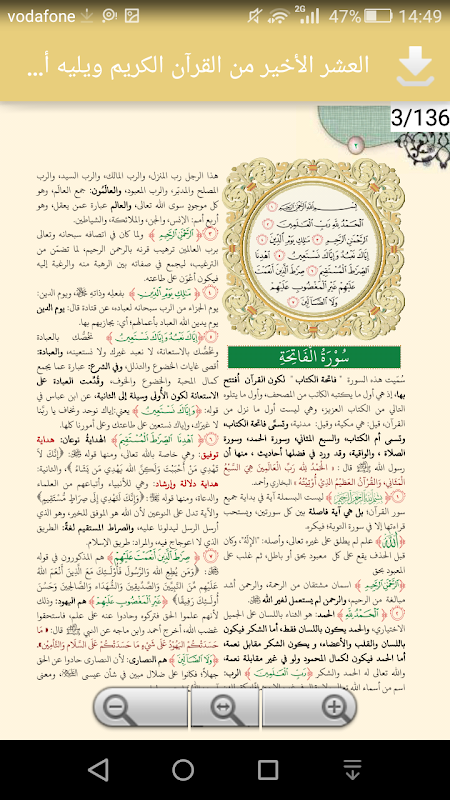 vodafone
2G
47%
14:49
العشر الأخير من القرآن الكريم ويليه أ...
3/136
٢
بِسْمِ اللَّهِ الرَّحْمَٰنِ الرَّحِيمِ
الْحَمْدُ لِلَّهِ رَبِّ الْعَالَمِينَ
الرَّحْمَٰنِ الرَّحِيمِ مَالِكِ يَوْمِ الدِّينِ
إِيَّاكَ نَعْبُدُ وَإِيَّاكَ نَسْتَعِينُ اهْدِنَا
الصِّرَاطَ الْمُسْتَقِيمَ صِرَاطَ الَّذِينَ أَنْعَمْتَ
عَلَيْهِمْ غَيْرِ الْمَغْضُوبِ عَلَيْهِمْ
وَلَا الضَّالِّينَ
سُورَةُ الْفَاتِحَةِ
سُميت هذه السورة " فاتحة الكتاب " لكون القرآن أفتتح
بها، إذ هي أول ما يكتبه الكاتب من المصحف، وأول ما يتلوه
التالي من الكتاب العزيز، وهي ليست أول ما نزل من
القرآن، قيل: هي مكية، وقيل: مدنية، وتسمَّى فاتحة الكتاب،
وتسمى أم الكتاب، والسبع المثاني، وسورة الحمد، وسورة
الصلاة، والواقية، وقد ورد في فضلها أحاديث، منها أن
رسول الله ﷺ قال: « الحَمْدُ لله رَبِّ العَالَمِينَ هِيَ السَّبْعُ
المَثَانِي، وَالقُرْآنُ العَظِيمُ الَّذِي أُوتِيتُهُ » البخاري وأحمد.
بِسْمِ اللَّهِ الرَّحْمَٰنِ الرَّحِيمِ ليست البسملة آية في بداية جميع
سور القرآن، بل هي آية فاصلة بين كل سورتين، ويستحب
قراءتها إلا في سورة التوبة؛ فيكره.
﴿اللَّهِ﴾ علم لم يطلق على غيره تعالى، وأصله: "الإله"، وكان
قبل الحذف يقع على كل معبود بحق أو باطل، ثم غلب على
المعبود بحق
﴿الرَّحْمَٰنِ الرَّحِيمِ﴾ اسمان مشتقان من الرحمة، والرحمن أشد
مبالغة من الرحيم، والرحمن لم يستعمل لغير الله
﴿الْحَمْدُ لِلَّهِ﴾ الحمد: هو الثناء باللسان على الجميل
الاختياري، والحمد يكون باللسان فقط، أما الشكر فيكون
باللسان والقلب والأعضاء، و يكون الشكر مقابل نعمة،
أما الحمد فيكون لكمال المحمود ولو في غير مقابلة نعمة،
والله تعالى له الحمد والشكر ﴿رَبِّ الْعَالَمِينَ﴾ الرب:
اسم من أسماء الله تعالى
هذا الرجل رب المنزل، والرب المالك، والرب السيد، والرب
المصلح والمدبّر، والرب المعبود، والعالَمُون: جمع العالَم، وهو
كل موجودٍ سوى الله تعالى، والعالم عبارة عمن يعقل، وهو
أربع أمم: الإنس، والجن، والملائكة، والشياطين.
﴿الرَّحْمَٰنِ الرَّحِيمِ﴾ ولما كان في اتصافه سبحانه وتعالى
برب العالمين ترهيب قرنه بالرحمن الرحيم، لما تضمّن من
الترغيب، ليجمع في صفاته بين الرهبة منه والرغبة إليه
فيكون أعوَن على طاعته.
﴿مَالِكِ يَوْمِ الدِّينِ﴾ بفعلِه وذاتِه، ويوم الدين:
يوم الجزاء من الرب سبحانه لعباده، عن قتادة قال: يوم الدين
يوم يدين الله العباد بأعمالهم؛ أي: يجازيهم بها.
﴿إِيَّاكَ نَعْبُدُ وَإِيَّاكَ نَسْتَعِينُ﴾ نخصُّك بالعبادة
ونخصُّك بالاستعانة، لا نعبد غيرك ولا نستعينه، والعبادة:
أقصى غايات الخضوع والتذلل، وفي الشرع: عبارة عما يجمع
كمال المحبة والخضوع والخوف، وقُدِّمت العبادة على
الاستعانة لكون الأُولى وسيلة إلى الثانية، عن ابن عباس في
قوله: ﴿وَإِيَّاكَ نَسْتَعِينُ﴾ يعني: إياك نوحد ونخاف يا ربَّنا
لا غيرك، وإياك نستعين على طاعتك وعلى أمورنا كلها.
﴿اهْدِنَا الصِّرَاطَ الْمُسْتَقِيمَ﴾ الهداية نوعان: هداية
توفيق: وهي خاصة بالله تعالى، ومنها قوله ﷺ: ﴿إِنَّكَ لَا
تَهْدِي مَنْ أَحْبَبْتَ وَلَكِنَّ اللَّهَ يَهْدِي مَن يَشَاءُ﴾، والثانية:
هداية دلالة وإرشاد: وهي للأنبياء وأتباعهم من العلماء
والدعاة، ومنها قوله: ﴿وَإِنَّكَ لَتَهْدِي إِلَى صِرَاطٍ مُّسْتَقِيمٍ﴾
والآية تدل على النوعين لأن الله هو الموفق للخير، وهو الذي
أرسل الرسل ليدلونا عليه، والصراط المستقيم لغة: الطريق
الذي لا اعوجاج فيه، والمراد: طريق الإسلام.
﴿صِرَاطَ الَّذِينَ أَنْعَمْتَ عَلَيْهِمْ﴾ هم المذكورون في قوله
﴿وَمَن يُطِعِ اللهَ وَالرَّسُولَ فَأُولَئِكَ مَعَ الَّذِينَ أَنْعَمَ اللهُ
عَلَيْهِم مِّنَ النَّبِيِّينَ وَالصِّدِّيقِينَ وَالشُّهَدَاءِ وَالصَّالِحِينَ وَحَسُنَ
أُولَئِكَ رَفِيقًا﴾ ﴿غَيْرِ الْمَغْضُوبِ عَلَيْهِمْ﴾ هم اليهود: وذلك
لأنهم علموا الحق فتركوه وحادوا عنه على علم، فاستحقوا
غضب الله، أخرج أحمد وابن ماجه عن النبي ﷺ قال: « مَا
حَسَدَتْكُمُ اليَهُودُ عَلَى شَيْءٍ مَا حَسَدَتْكُمْ عَلَى السَّلَامِ وَالتَّأْمِينِ»
﴿وَلَا الضَّالِّينَ﴾ هم النصارى: لأن النصارى حادوا عن الحق
جهلاً؛ فكانوا على ضلال مبين في شأن عيسى، ومعنى